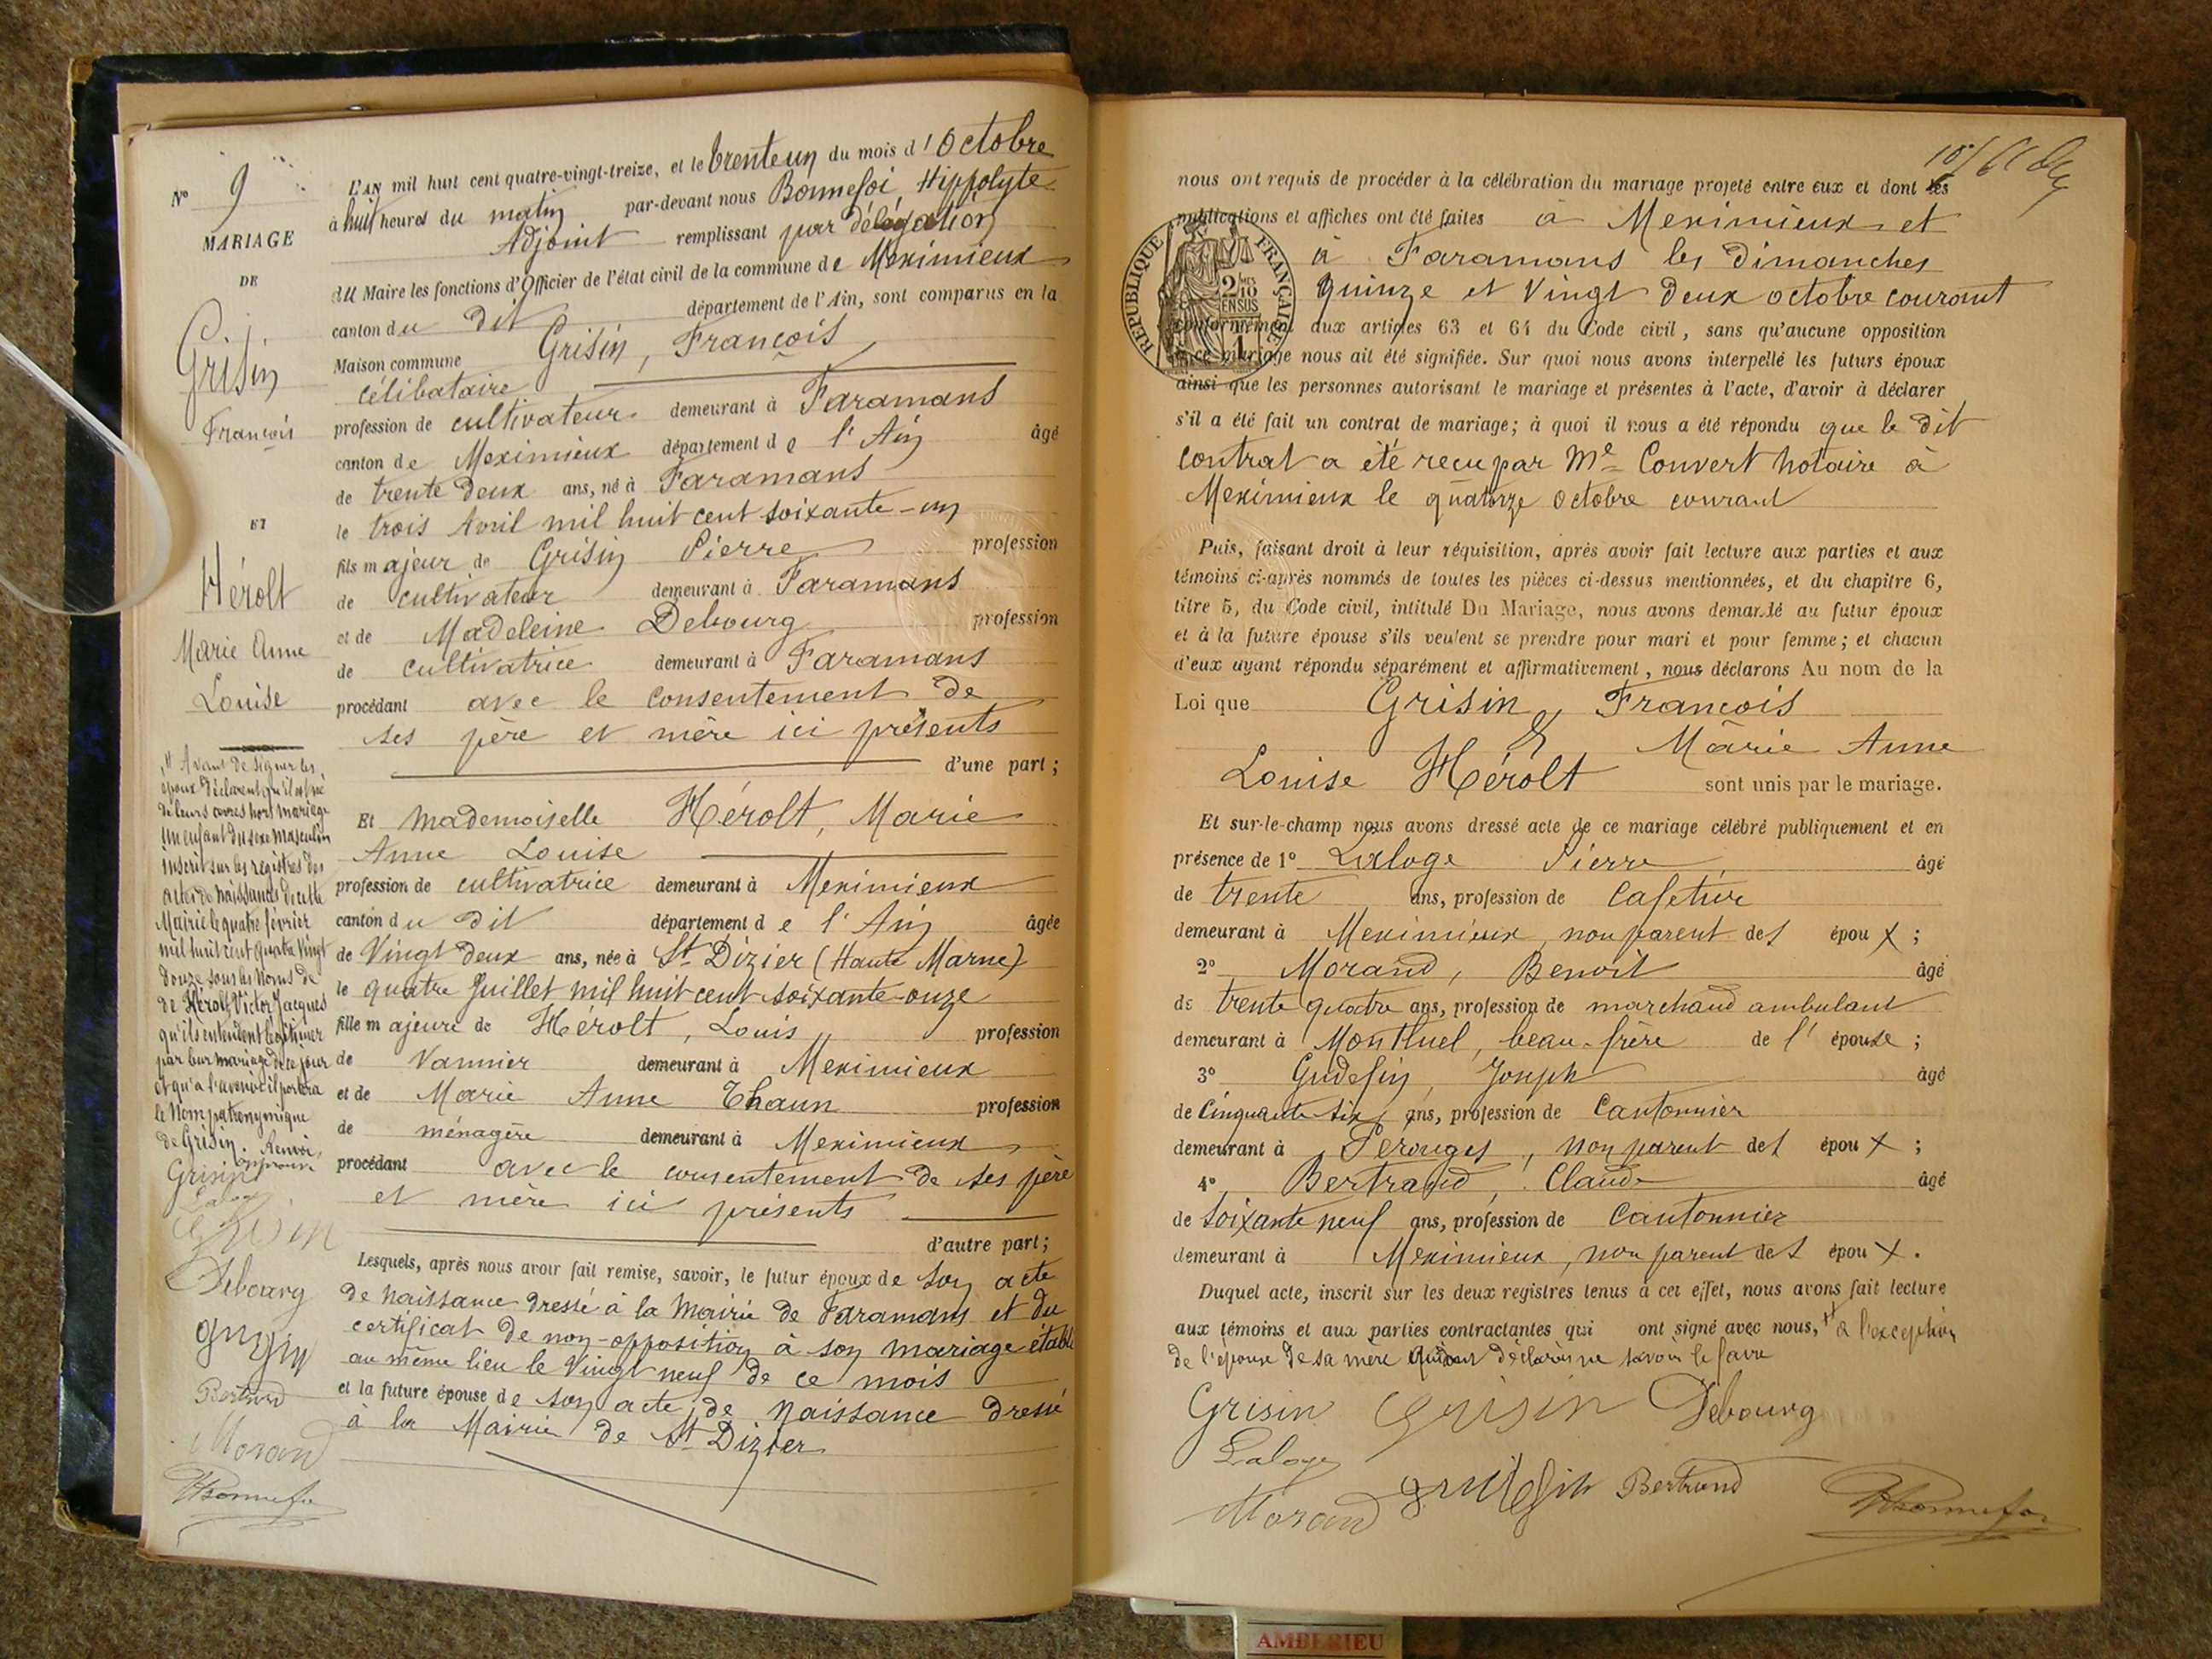 N° 9
MARIAGE
DE
Grisin
François
ET
Hérolt
Marie Anne
Louise
L'AN mil huit cent quatre-vingt-treize, et le trente un du mois d'Octobre
à huit heures du matin par-devant nous Bonnefoi Hippolyte
Adjoint remplissant par délégation
du Maire les fonctions d'Officier de l'état civil de la commune de Meximieux
canton du dit département de l'Ain, sont comparus en la
Maison commune Grisin, François
célibataire
profession de cultivateur demeurant à Faramans
canton de Meximieux département de l'Ain âgé
de trente deux ans, né à Faramans
le trois Avril mil huit cent soixante-un
fils majeur de Grisin Pierre profession
de cultivateur demeurant à Faramans
et de Madeleine Debourg profession
de cultivatrice demeurant à Faramans
procédant avec le consentement de
ses père et mère ici présents
d'une part;
Et Mademoiselle Hérolt, Marie
Anne Louise
profession de cultivatrice demeurant à Meximieux
canton du dit département de l'Ain âgée
de Vingt deux ans, née à St Dizier (Haute Marne)
le quatre Juillet mil huit cent soixante-onze
fille majeure de Hérolt, Louis profession
de Vannier demeurant à Meximieux
et de Marie Anne Thaun profession
de ménagère demeurant à Meximieux
procédant avec le consentement de ses père
et mère ici présents
d'autre part;
Lesquels, après nous avoir fait remise, savoir, le futur époux de son acte
de naissance dressé à la Mairie de Faramans et du
certificat de non-opposition à son mariage établi
au même lieu le Vingt neuf de ce mois
et la future épouse de son acte de Naissance dressé
à la Mairie de St Dizier
Avant de signer les
époux déclarent qu'il est né
de leurs œuvres hors mariage
un enfant du sexe masculin
inscrit sur les registres des
actes de naissances de cette
Mairie le quatre février
mil huit cent quatre Vingt
douze sous les Noms de
de Hérolt, Victor Jacques
qu'ils entendent légitimer
par leur mariage de ce jour
et qu'à l'avenir il portera
le Nom patronymique
de Grisin. Renvoi
approuvé
Grisin
Laloge
Grisin
Debourg
Bertrand
Morand
HBonnefoi
nous ont requis de procéder à la célébration du mariage projeté entre eux et dont les
publications et affiches ont été faites à Meximieux et
à Faramans les Dimanches
Quinze et Vingt Deux octobre courant
conformément aux articles 63 et 64 du Code civil, sans qu'aucune opposition
à ce mariage nous ait été signifiée. Sur quoi nous avons interpellé les futurs époux
ainsi que les personnes autorisant le mariage et présentes à l'acte, d'avoir à déclarer
s'il a été fait un contrat de mariage; à quoi il nous a été répondu que le dit
contrat a été reçu par Me Convert notaire à
Meximieux le quatorze Octobre courant
RÉPUBLIQUE FRANÇAISE
2/10 EN SUS
Puis, faisant droit à leur réquisition, après avoir fait lecture aux parties et aux
témoins ci-après nommés de toutes les pièces ci-dessus mentionnées, et du chapitre 6,
titre 5, du Code civil, intitulé Du Mariage, nous avons demandé au futur époux
et à la future épouse s'ils veulent se prendre pour mari et pour femme; et chacun
d'eux ayant répondu séparément et affirmativement, nous déclarons Au nom de la
Loi que Grisin, François
& Marie Anne
Louise Hérolt sont unis par le mariage.
Et sur-le-champ nous avons dressé acte de ce mariage célébré publiquement et en
présence de 1° Laloge Pierre, âgé
de trente ans, profession de Cafetier
demeurant à Meximieux, non parent des époux;
2° Morand, Benoit âgé
de trente quatre ans, profession de marchand ambulant
demeurant à Montluel, beau-frère de l'épouse;
3° Gudefin, Joseph âgé
de Cinquante six ans, profession de Cantonnier
demeurant à Pérouges, non parent des époux;
4° Bertrand, Claude âgé
de Soixante neuf ans, profession de Cantonnier
demeurant à Meximieux, non parent des époux.
Duquel acte, inscrit sur les deux registres tenus à cet effet, nous avons fait lecture
aux témoins et aux parties contractantes qui ont signé avec nous, à l'exception
de l'épouse de sa mère qui ont déclaré ne savoir le faire
Grisin Grisin Debourg
Laloge
Morand Gudefin Bertrand HBonnefoi
AMBERIEU